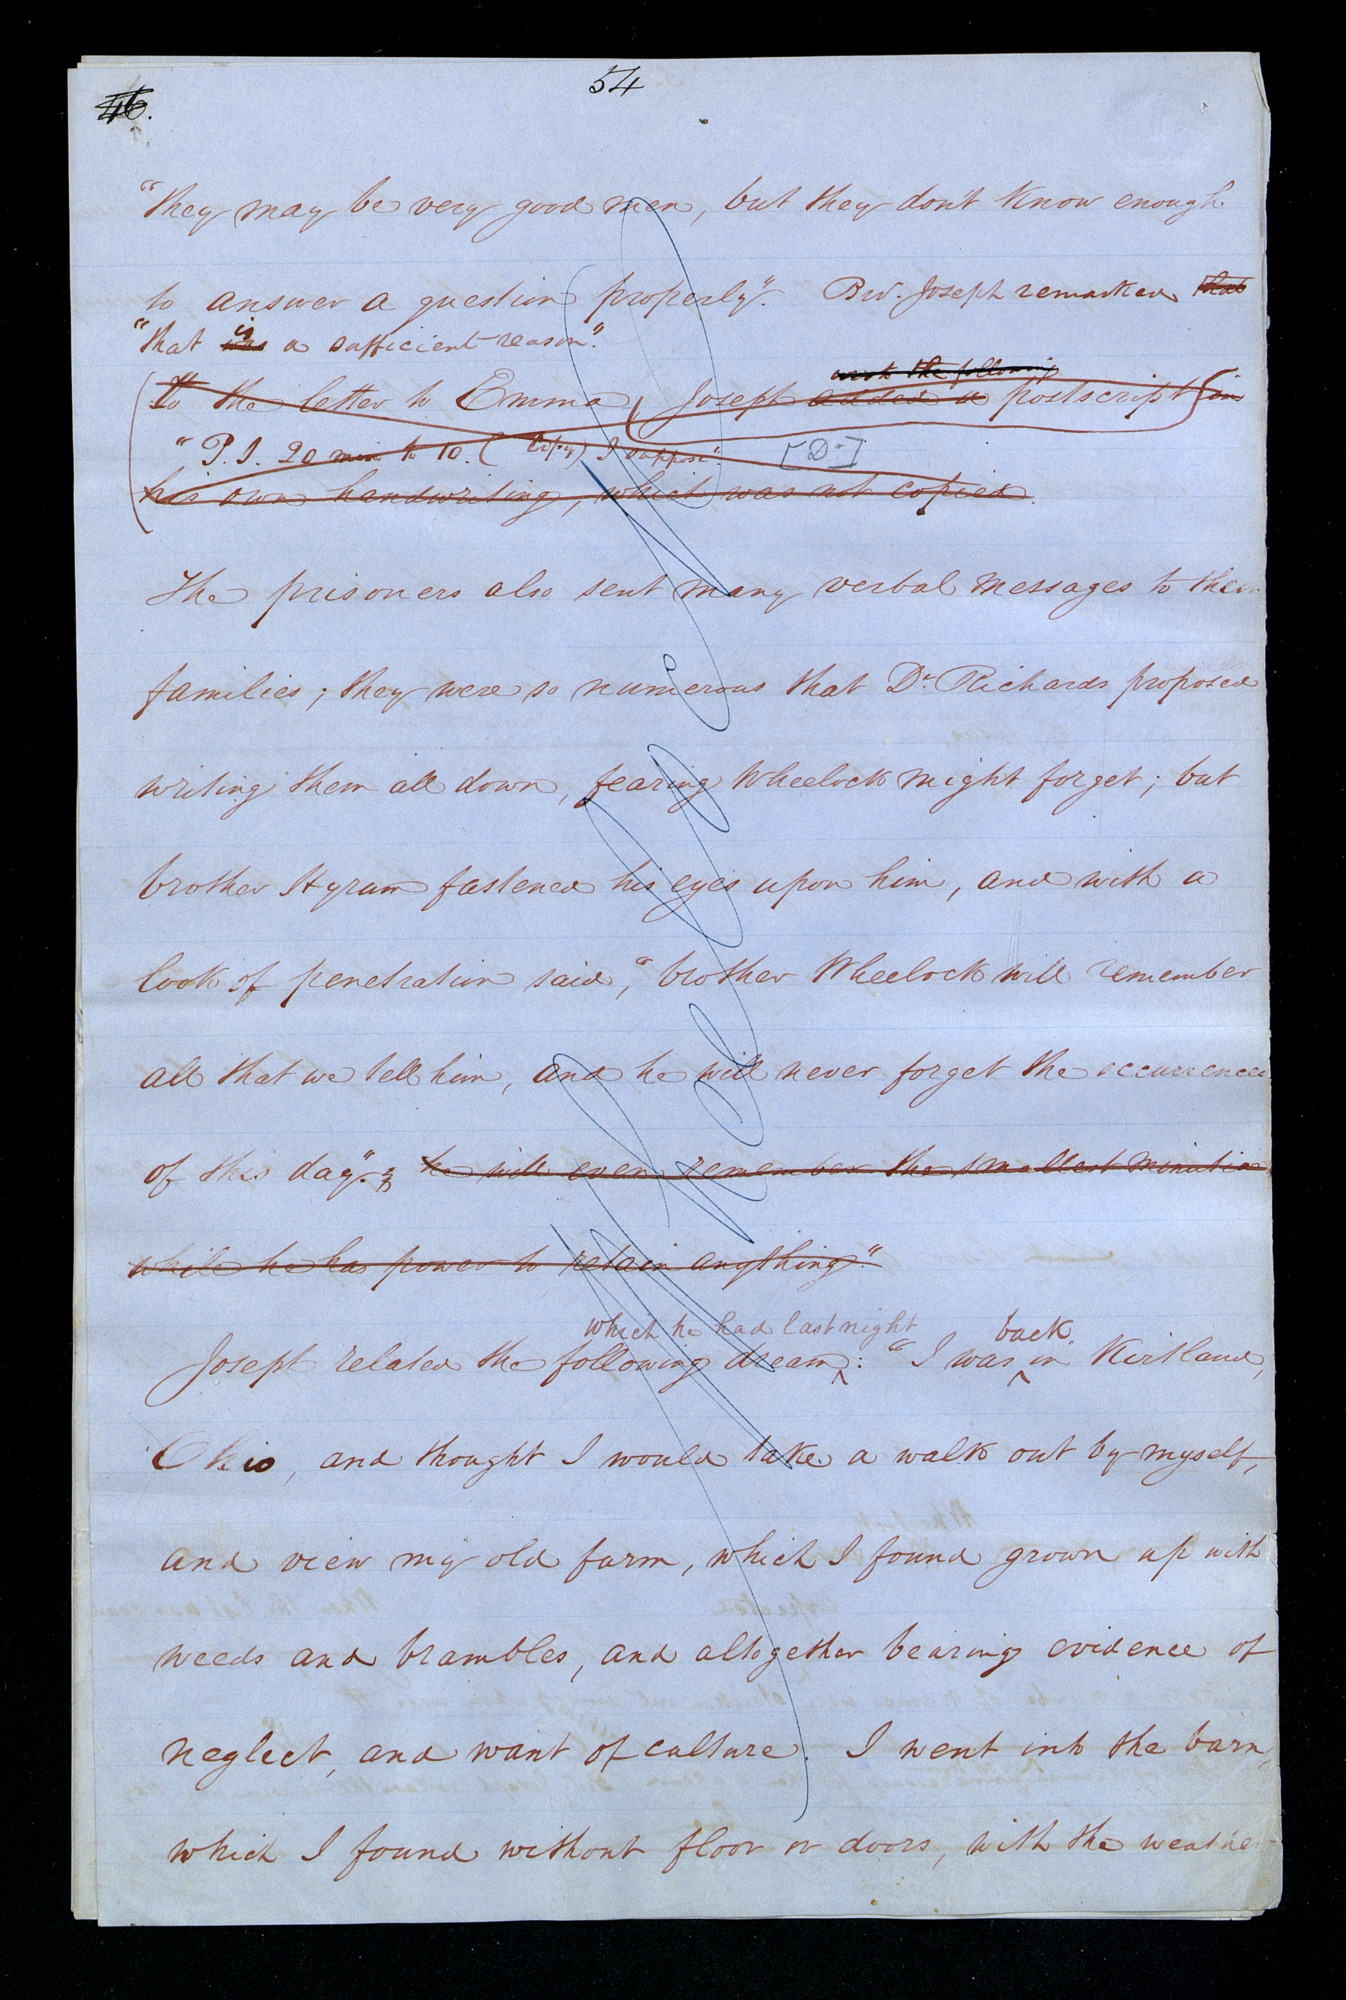 54
46.
"they may be very good men, but they don't know enough
to answer a question properly". Bro. Joseph remarked that
"that was is a sufficient reason."
wrote the following
To the letter to Emma Joseph added a postscript in
"P.S. 20 min to 10. (Copy) I suppose". [Dr]
his own handwriting, which was not copied.
The prisoners also sent many verbal messages to their
families; they were so numerous that Dr. Richards proposed
writing them all down, fearing Wheelock might forget; but
brother Hyrum fastened his eyes upon him, and with a
look of penetration said, "brother Wheelock will remember
all that we tell him, and he will never forget the occurrences
of this day". he will even remember the smallest minutia
while he has power to retain anything."
which he had last night back
Joseph related the following dream: "I was in Kirtland,
Ohio, and thought I would take a walk out by myself,
and view my old farm, which I found grown up with
weeds and brambles, and altogether bearing evidence of
neglect, and want of culture. I went into the barn,
which I found without floor or doors, with the weather
Wheelock